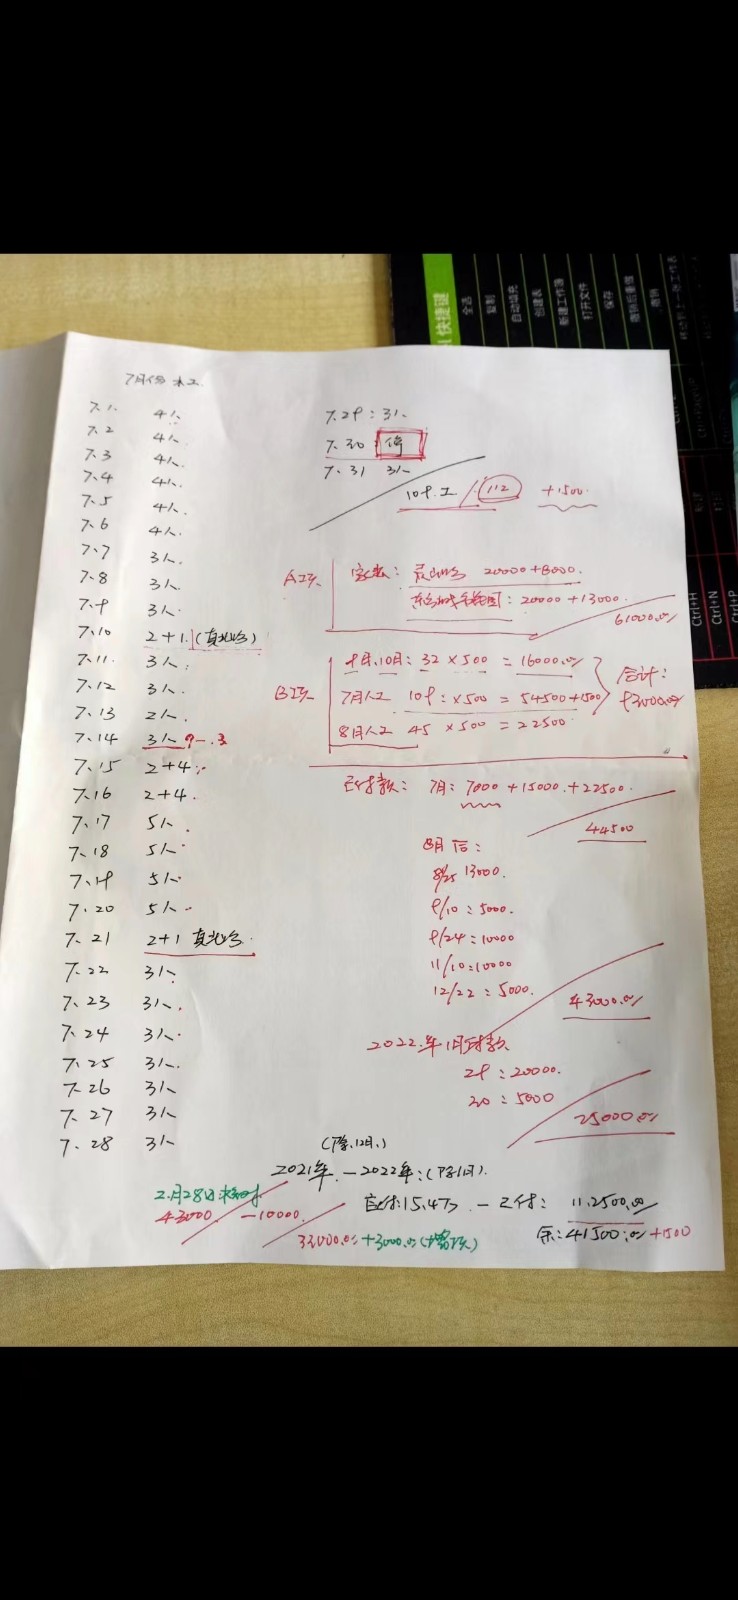 7月份木工
7.1. 4人
7.2 4人
7.3 4人
7.4 4人
7.5 4人
7.6 4人
7.7 3人
7.8 3人
7.9 3人
7.10 2+1.
7.11. 3人
7.12 3人
7.13 2人
7.14 3人
7.15 2+4
7.16 2+4
7.17 5人
7.18 5人
7.19 5人
7.20 5人
7.21 2+1
7.22 3人
7.23 3人
7.24 3人
7.25 3人
7.26 3人
7.27 3人
7.28 3人
7.29:3人
7.30:停
7.31 3人
109.工 / 112 +1500.
A项 20000+8000.
:20000+13000.
61000.00
B项
9月.10月:32×500=16000.00
7月人工 109:×500=54500+1500
8月人工 45×500=22500
合计:
93000.00
已付款: 7月:7000+15000.+22500.
44500
8月后:
8/25 13000.
9/10:5000.
9/24:10000
11/10:10000
12/22:5000.
43000.00
2022.年1月付款
29:20000.
30:5000
25000.00
2021年.-2022年:
应付:15.4万-已付: 11.2500.00
余:41500.00+1500
2.月28日
43000 -10000.
33000.00+3000.00
全选
复制
自动填充
创建表
新建工作簿
打开文件
保存
撤销
快捷键
Ctrl+H
Ctrl+N